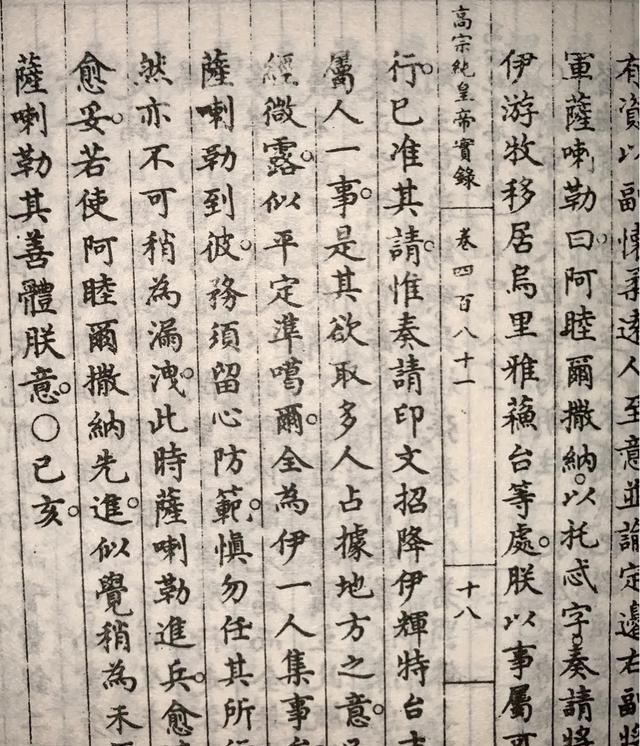 有資以副懷柔遠人至意並諭定邊右副將
軍薩喇勒曰阿睦爾撒納以托忒字奏請將
伊游牧移居烏里雅蘇台等處朕以事屬可
高宗純皇帝實錄 卷四百八十一 十八
行已准其請惟奏請印文招降伊輝特台吉
屬人一事是其欲取多人占據地方之意
經微露似平定準噶爾全為伊一人集事
薩喇勒到彼務須留心防範慎勿任其所
然亦不可稍為漏洩此時薩喇勒進兵愈
愈妥若使阿睦爾撒納先進似覺稍為未
薩喇勒其善體朕意○己亥